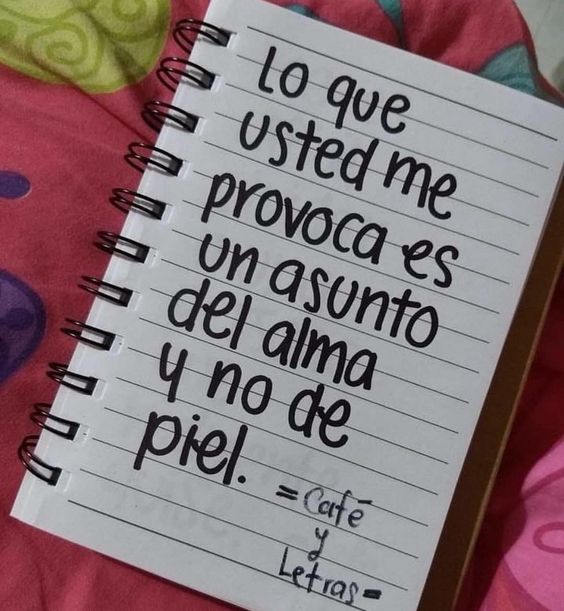 Lo que
usted me
provoca es
un asunto
del alma
y no de
piel.
=Café
y
Letras=